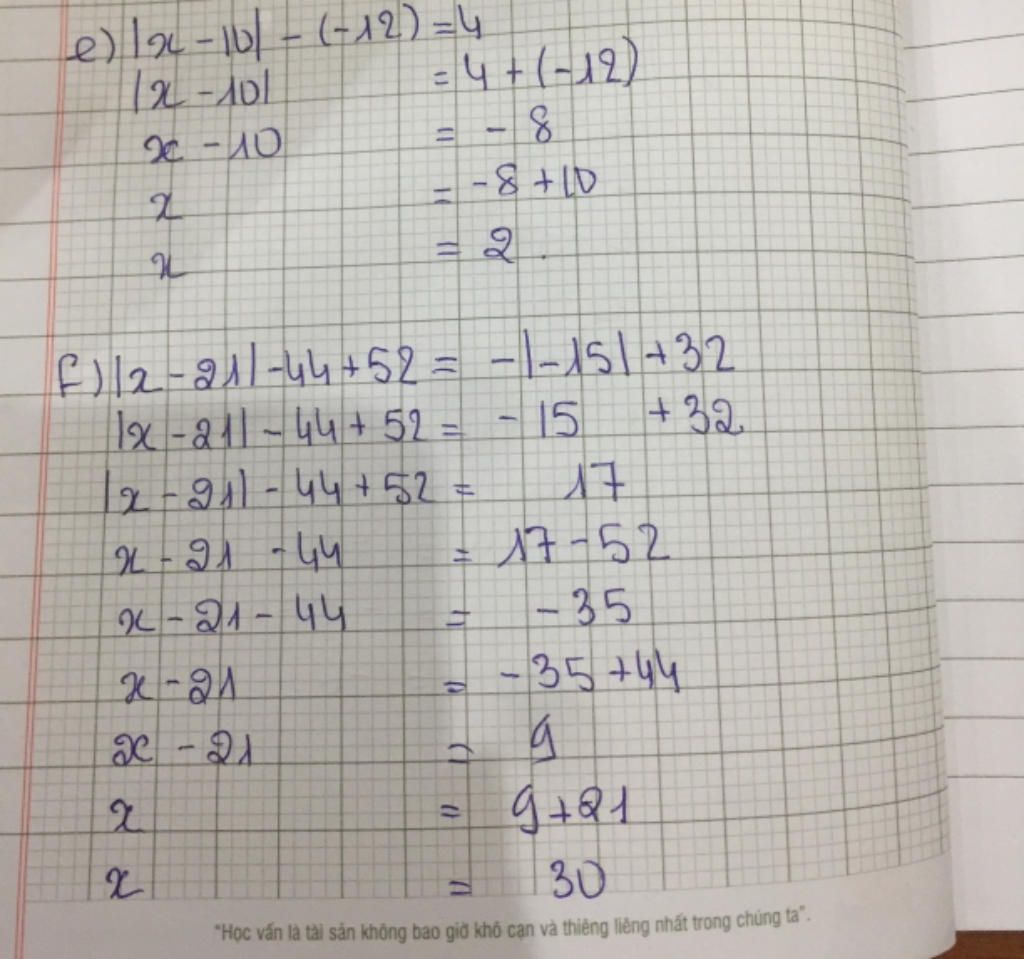 e) |x - 10| - (-12) = 4
|x - 10| = 4 + (-12)
x - 10 = - 8
x = -8 + 10
x = 2.
f) |x - 21| - 44 + 52 = -|-15| + 32
|x - 21| - 44 + 52 = - 15 + 32
|x - 21| - 44 + 52 = 17
x - 21 - 44 = 17 - 52
x - 21 - 44 = - 35
x - 21 = - 35 + 44
x - 21 = 9
x = 9 + 21
x = 30
"Học vấn là tài sản không bao giờ khô cạn và thiêng liêng nhất trong chúng ta".